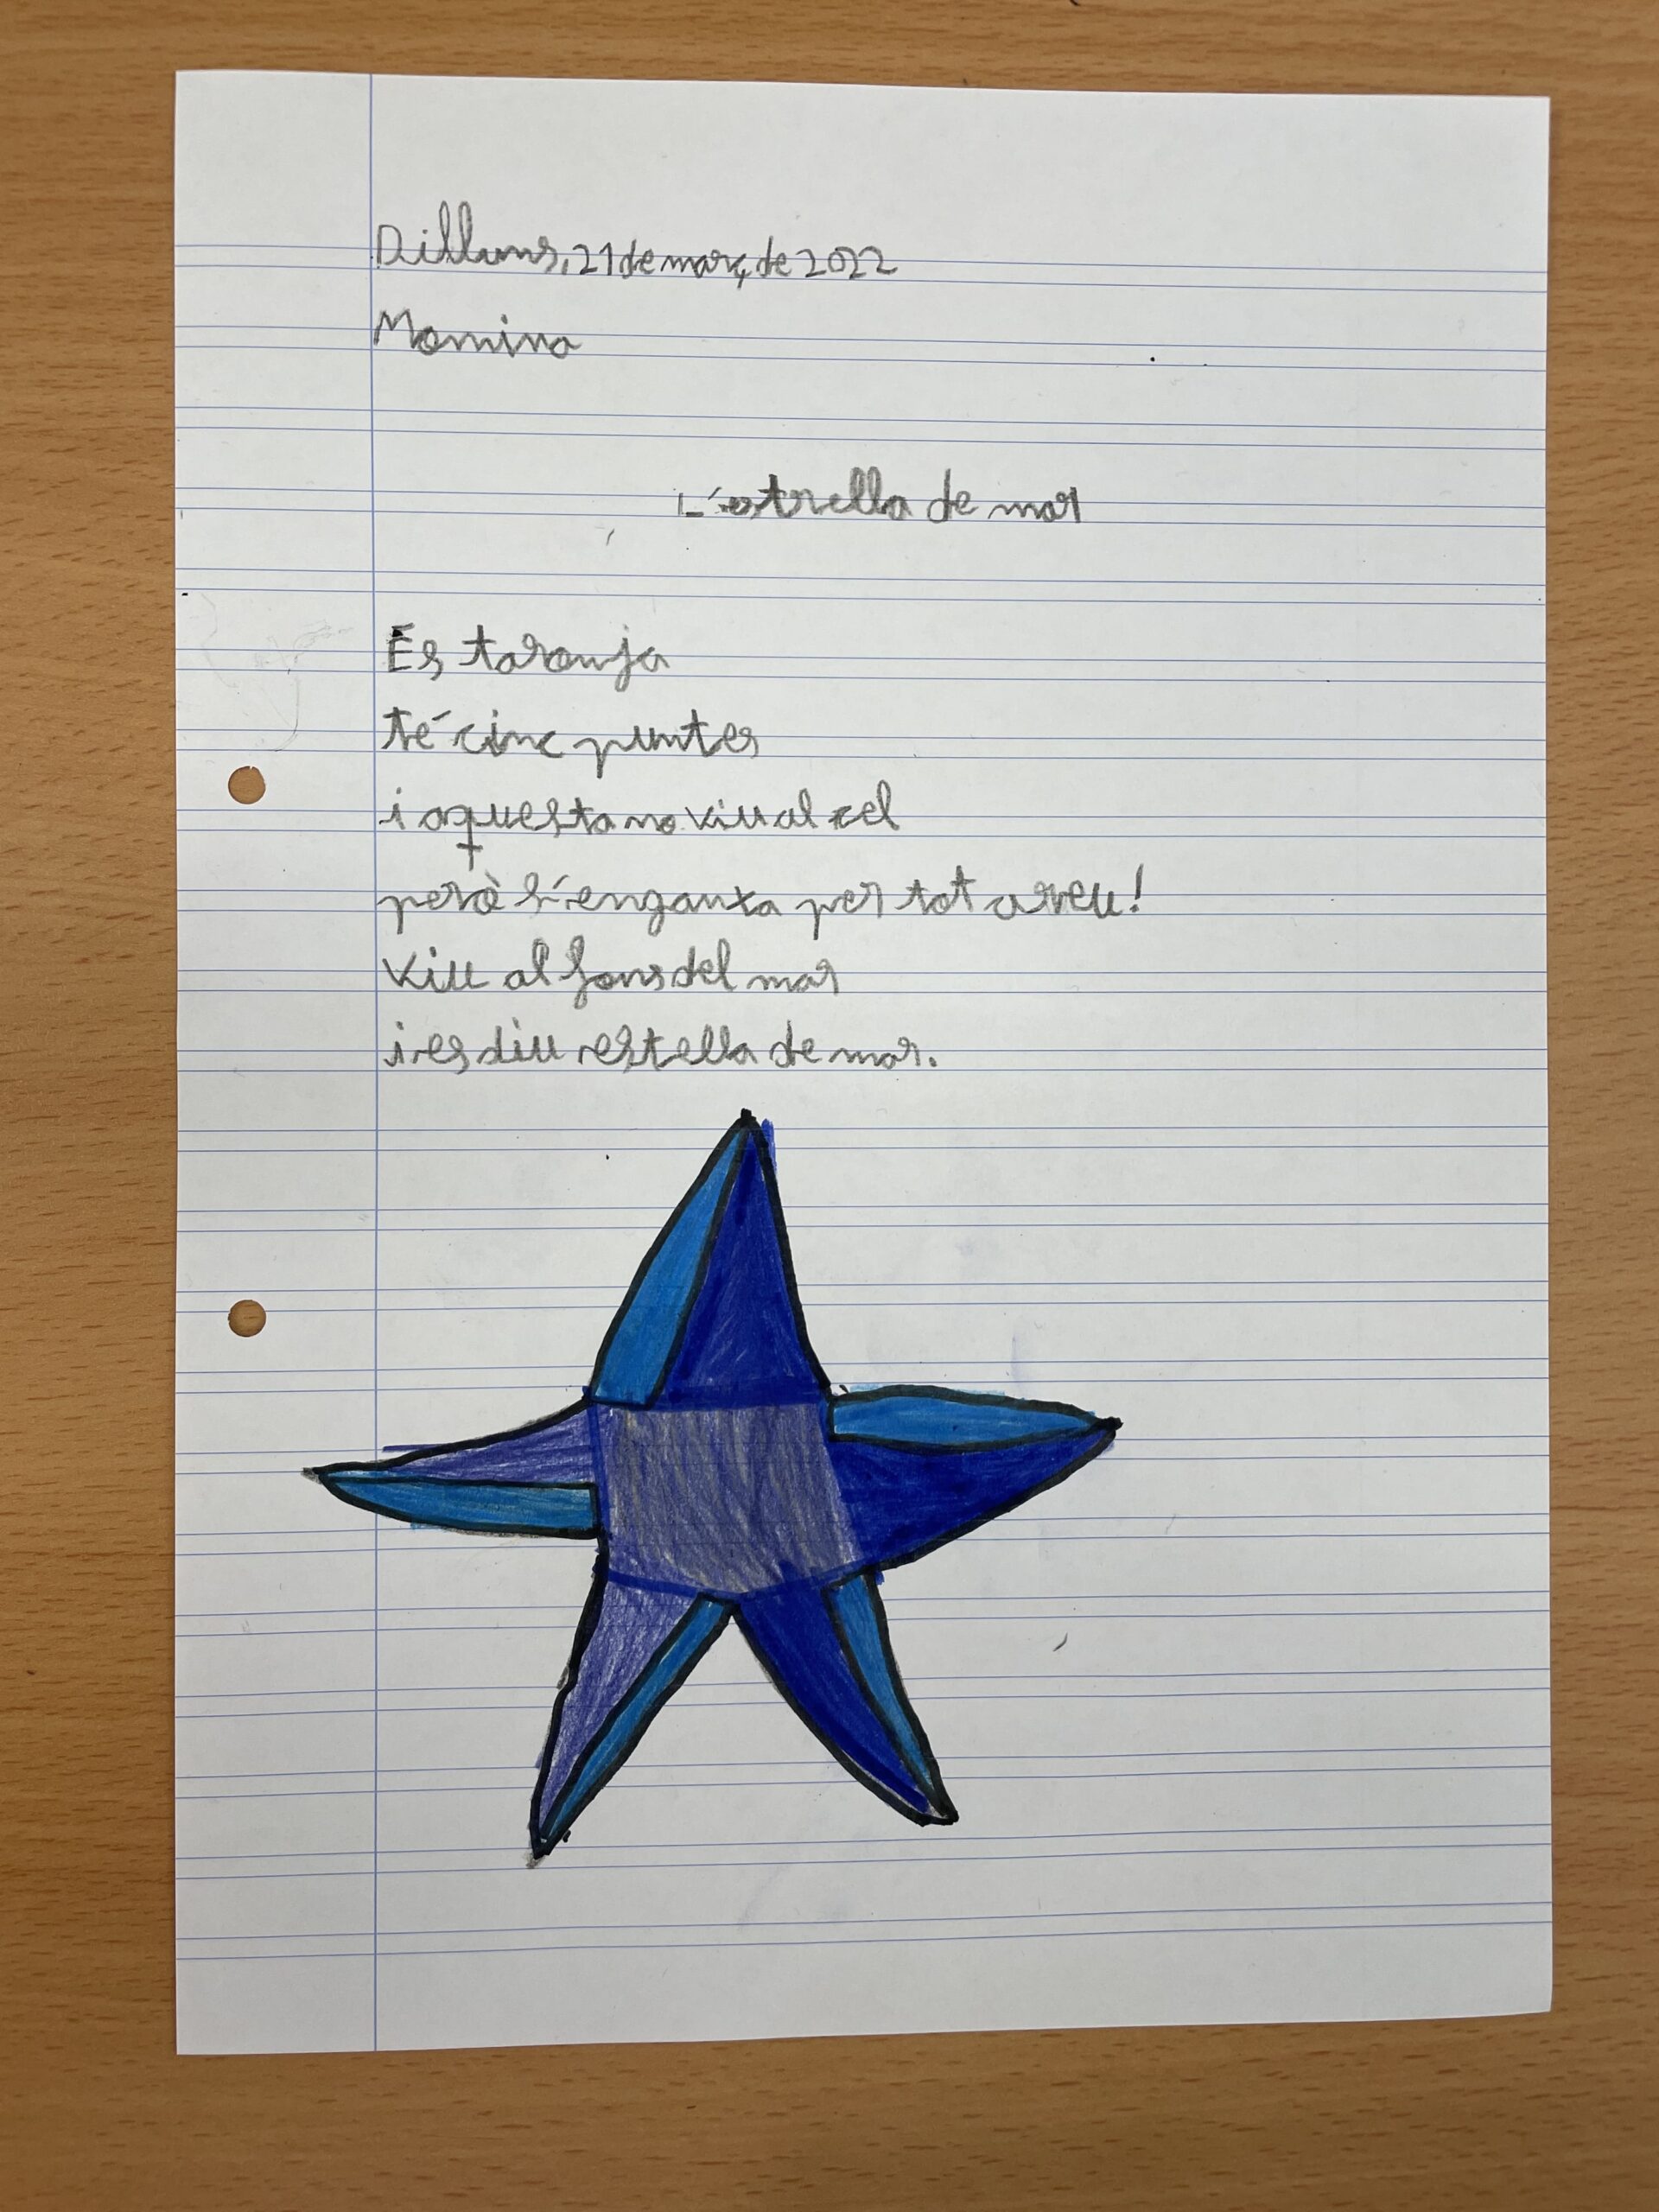 Dilluns, 21 de març de 2022
Momina
L'estrella de mar
És taronja
té cinc puntes
i aquesta no viu al cel
però s'enganxa per tot areu!
Viu al fons del mar
i es diu estella de mar.